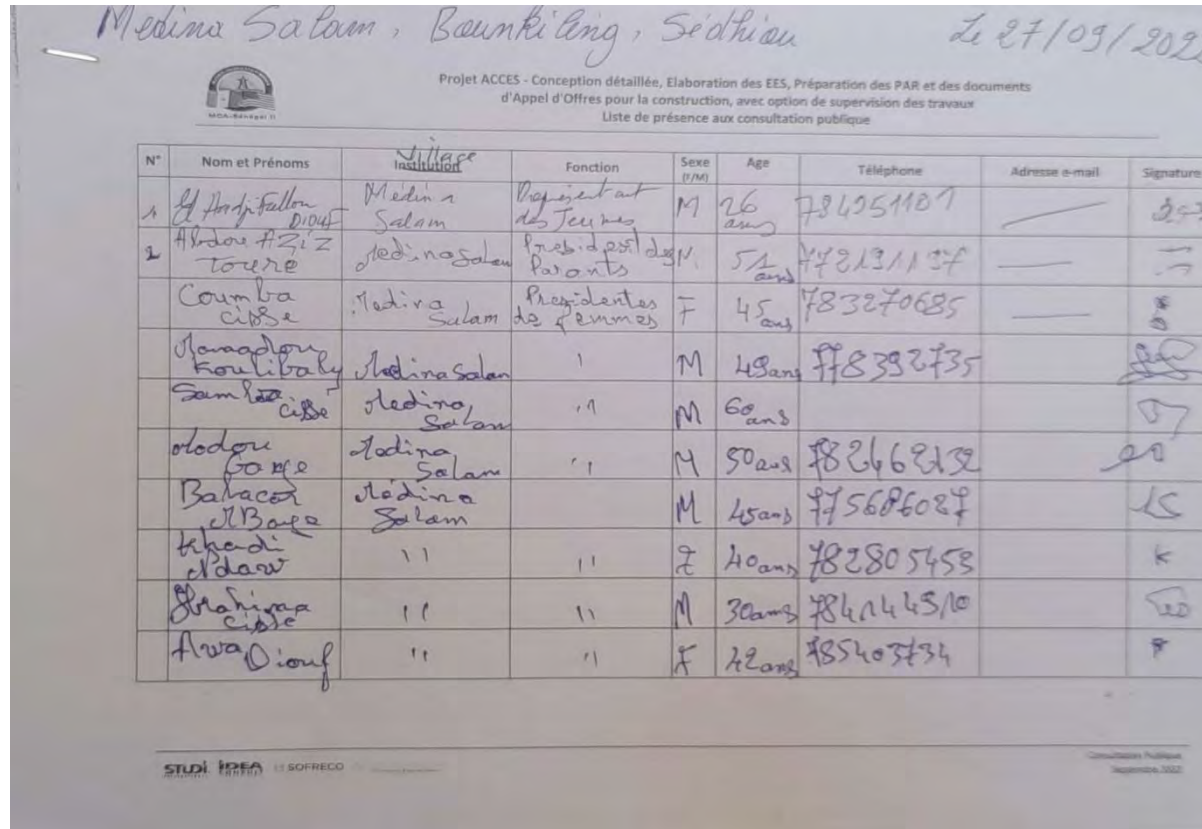 Medina Salam, Bounkiling, Sédhiou Le 27/09/202
MCA-Sénégal II
Projet ACCES - Conception détaillée, Elaboration des EES, Préparation des PAR et des documents
d'Appel d'Offres pour la construction, avec option de supervision des travaux
Liste de présence aux consultation publique
N° Nom et Prénoms Village Institution Fonction Sexe (F/M) Age Téléphone Adresse e-mail Signature
1 El Hadji Fallou DIOUF Médina Salam Représentant des Jeunes M 26 ans 784251101
2 Abdou AZIZ Touré Medina Salam President des Parants 51 ans 772191137
Coumba cisse Medina Salam Presidentes de femmes F 45 ans 783270685
Mamadou Koulibaly Medina Salam M 49 ans 778392735
Samba cisse Medina Salam " M 60 ans
Modou Medina Salam " M 50 ans 782462132
Babacar MBaye Médina Salam M 45 ans 775686027
Khadi Ndaw " " F 40 ans 782805453
Ibrahima cisse " " M 30 ans
Awa Diouf " " F 42 ans 785403734
STUDI IDEA SOFRECO
Consultation Publique
Septembre 2022